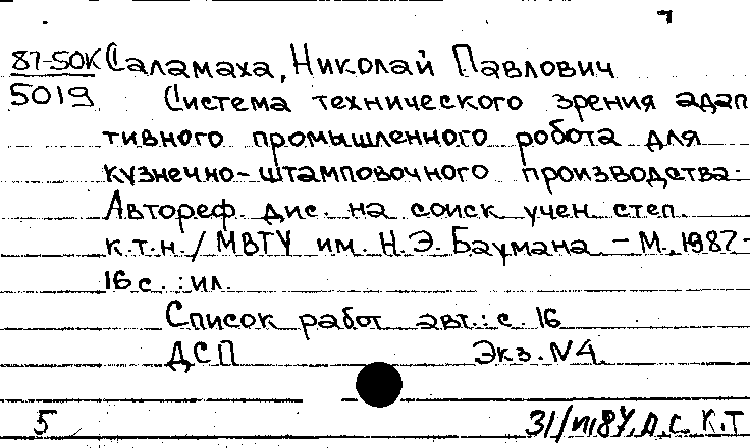 87-50К Саламаха, Николай Павлович
5019 Система технического зрения адап
тивного промышленного робота для
кузнечно-штамповочного производства.
Автореф. дис. на соиск учен степ.
к.т.н. / МВТУ им. Н.Э. Баумана - М., 1987.-
16 с. : ил.
Список работ авт.: с. 16
ДСП Экз. N4.
5